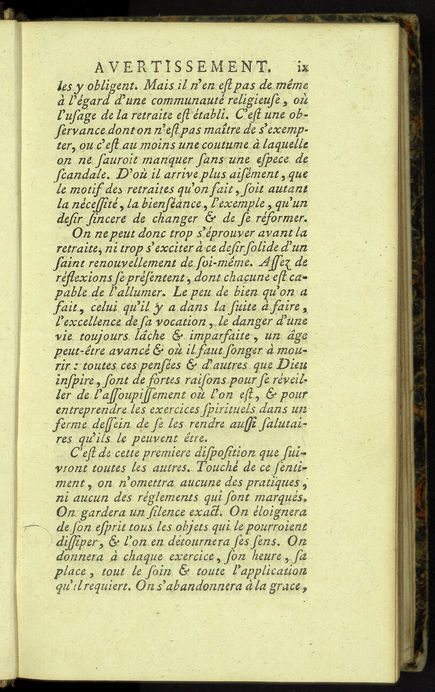 AVERTISSEMENT. ix
les y obligent. Mais il n'en eſt pas de même
à l'égard d'une communauté religieuſe, où
l'uſage de la retraite eſt établi. C'eſt une ob-
ſervance dont on n'eſt pas maître de s'exemp-
ter, ou c'eſt au moins une coutume à laquelle
on ne ſauroit manquer ſans une eſpece de
ſcandale. D'où il arrive plus aiſément, que
le motif des retraites qu'on fait, ſoit autant
la néceſſité, la bienſéance, l'exemple, qu'un
deſir ſincere de changer & de ſe réformer.
On ne peut donc trop s'éprouver avant la
retraite, ni trop s'exciter à ce deſir ſolide d'un
ſaint renouvellement de ſoi-même. Aſſez de
réflexions ſe préſentent, dont chacune eſt ca-
pable de l'allumer. Le peu de bien qu'on a
fait, celui qu'il y a dans la ſuite à faire,
l'excellence de ſa vocation, le danger d'une
vie toujours lâche & imparfaite, un âge
peut-être avancé & où il faut ſonger à mou-
rir : toutes ces penſées & d'autres que Dieu
inſpire, ſont de fortes raiſons pour ſe réveil-
ler de l'aſſoupiſſement où l'on eſt, & pour
entreprendre les exercices ſpirituels dans un
ferme deſſein de ſe les rendre auſſi ſalutai-
res qu'ils le peuvent être.
C'eſt de cette premiere diſpoſition que ſui-
vront toutes les autres. Touché de ce ſenti-
ment, on n'omettra aucune des pratiques,
ni aucun des réglements qui ſont marqués.
On gardera un ſilence exact. On éloignera
de ſon eſprit tous les objets qui le pourroient
diſſiper, & l'on en détournera ſes ſens. On
donnera à chaque exercice, ſon heure, ſa
place, tout le ſoin & toute l'application
qu'il requiert. On s'abandonnera à la grace,